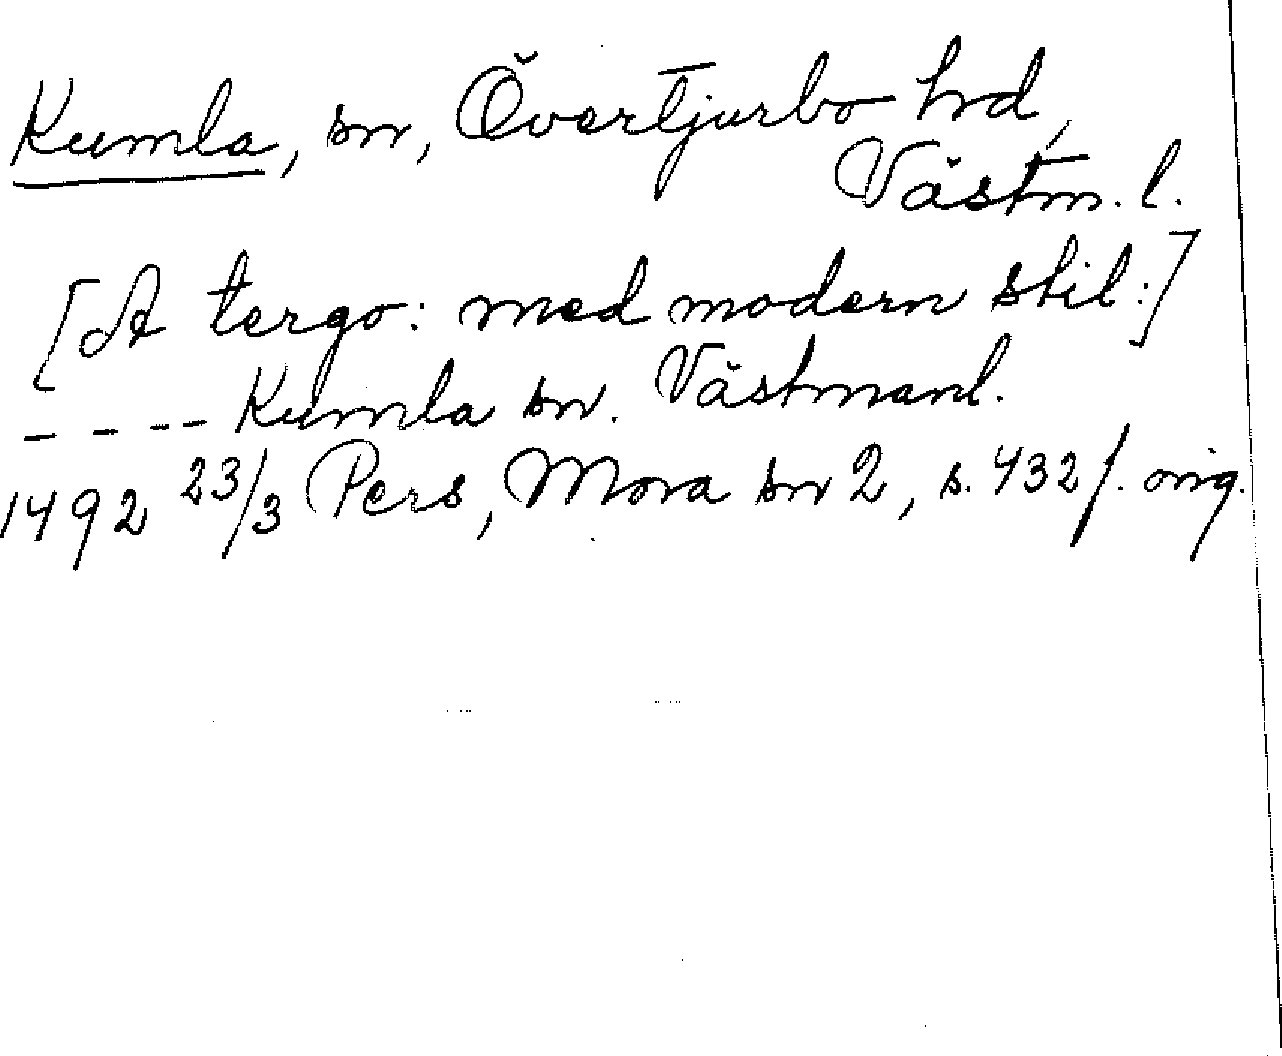 Kumla, sn, Övertjurbo hd,
Västm. l.
[A tergo: med modern stil:]
---- Kumla sn. Västmanl.
1492 23/3 Pers, Mora sn 2, s. 432 /. orig.